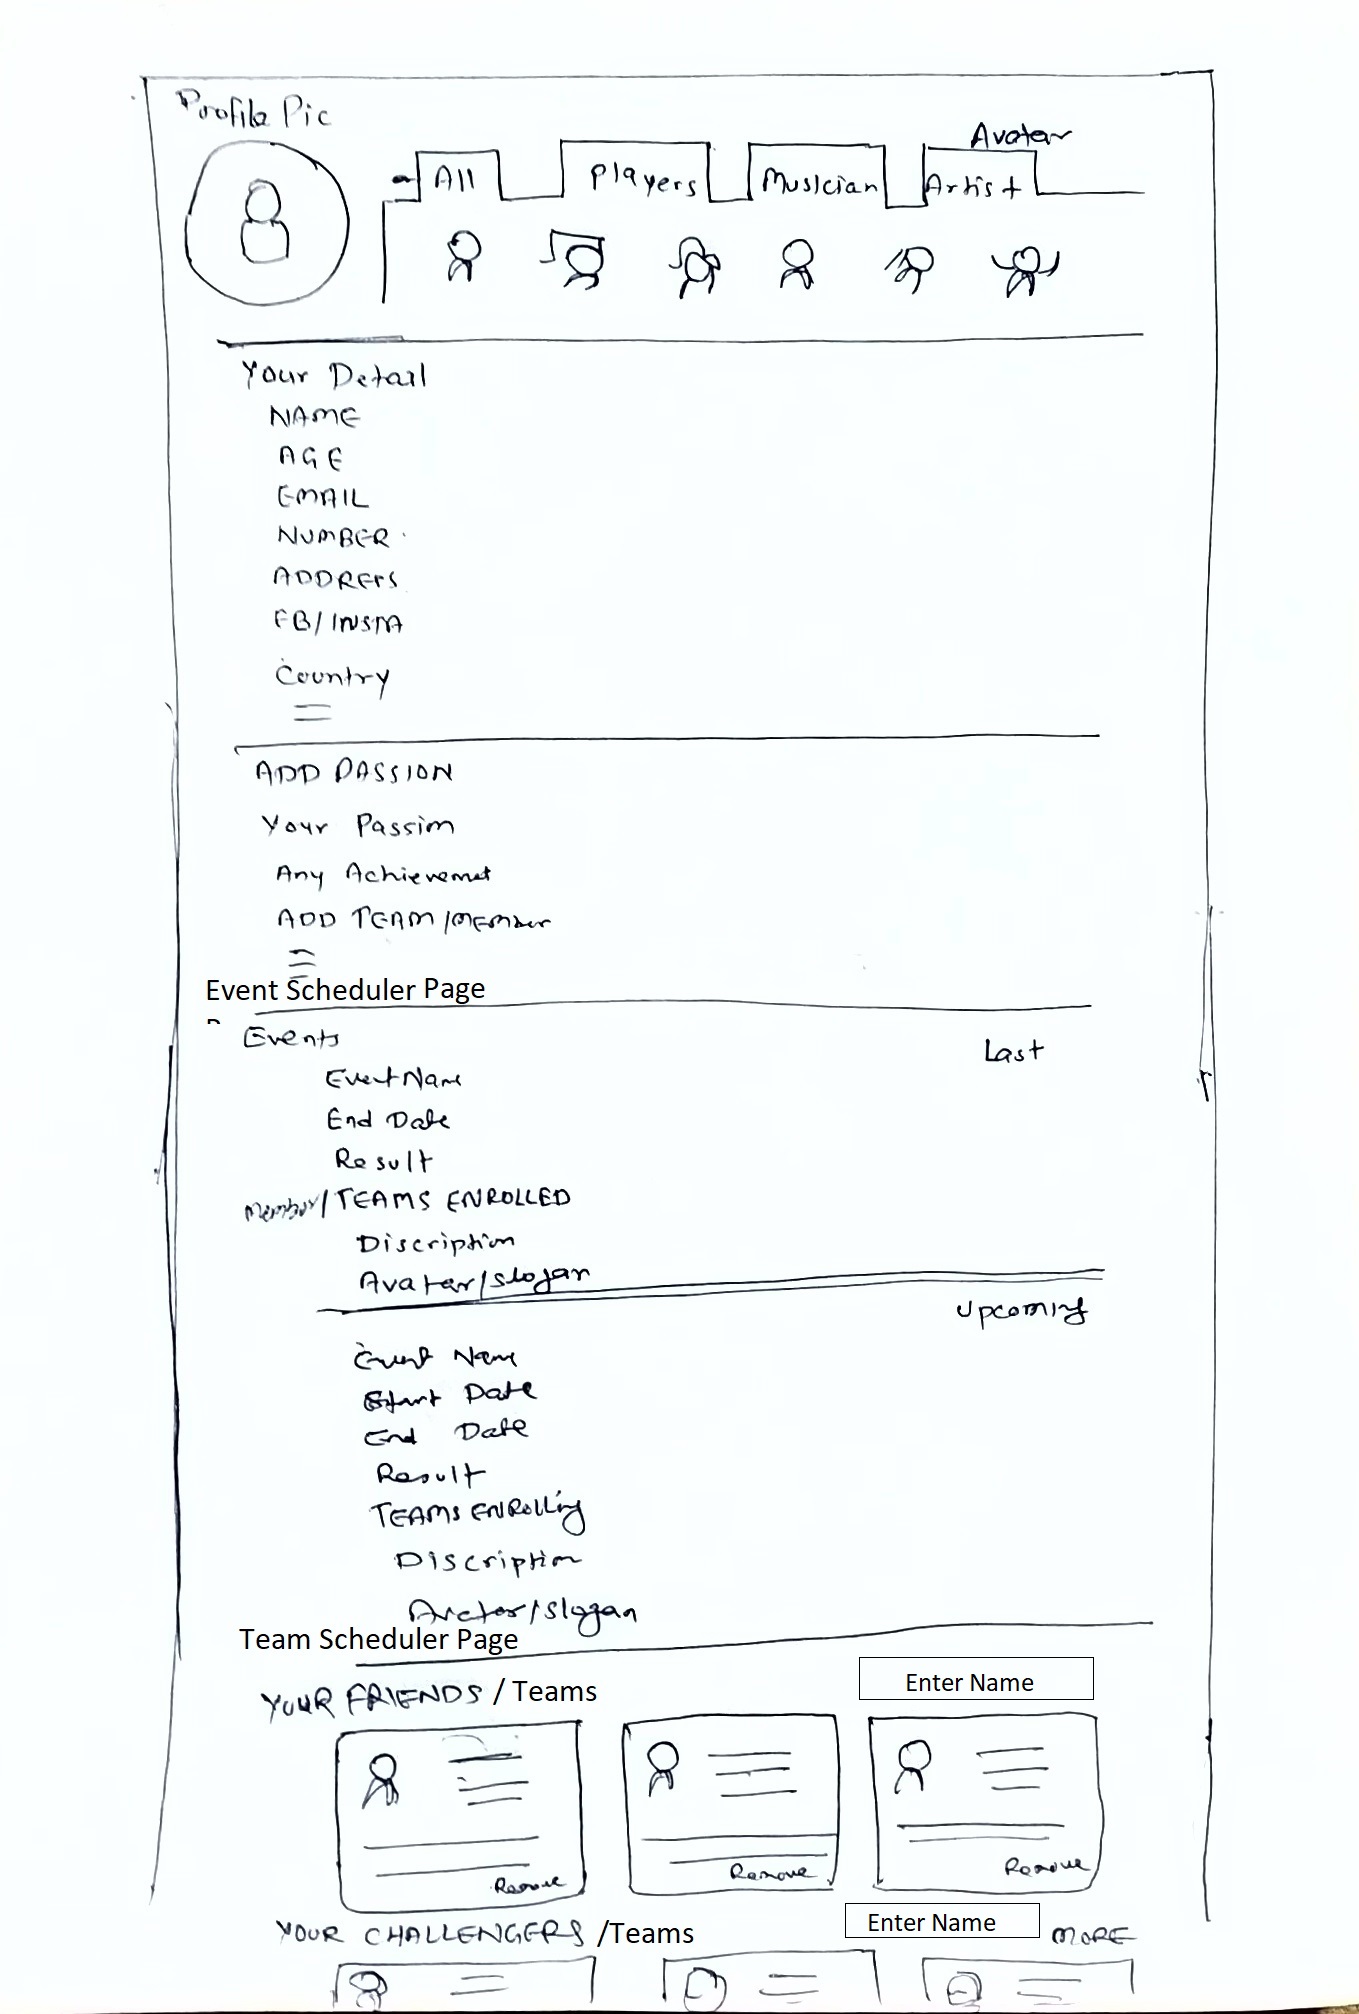 Profile Pic
Avatar
All Players Musician Artist
Your Detail
NAME
AGE
EMAIL
NUMBER
ADDRESS
FB/INSTA
Country
ADD PASSION
Your Passion
Any Achievemet
ADD TEAM/MEMber
Event Scheduler Page
Events
Last
Event Name
End Date
Result
Member/TEAMS ENROLLED
Discription
Avatar/slogan
Upcoming
Event Name
Start Date
End Date
Result
TEAMS ENROLLing
Discription
Avatar/slogan
Team Scheduler Page
YOUR FRIENDS / Teams Enter Name
Remove Remove Remove
YOUR CHALLENGERS /Teams Enter Name MORE